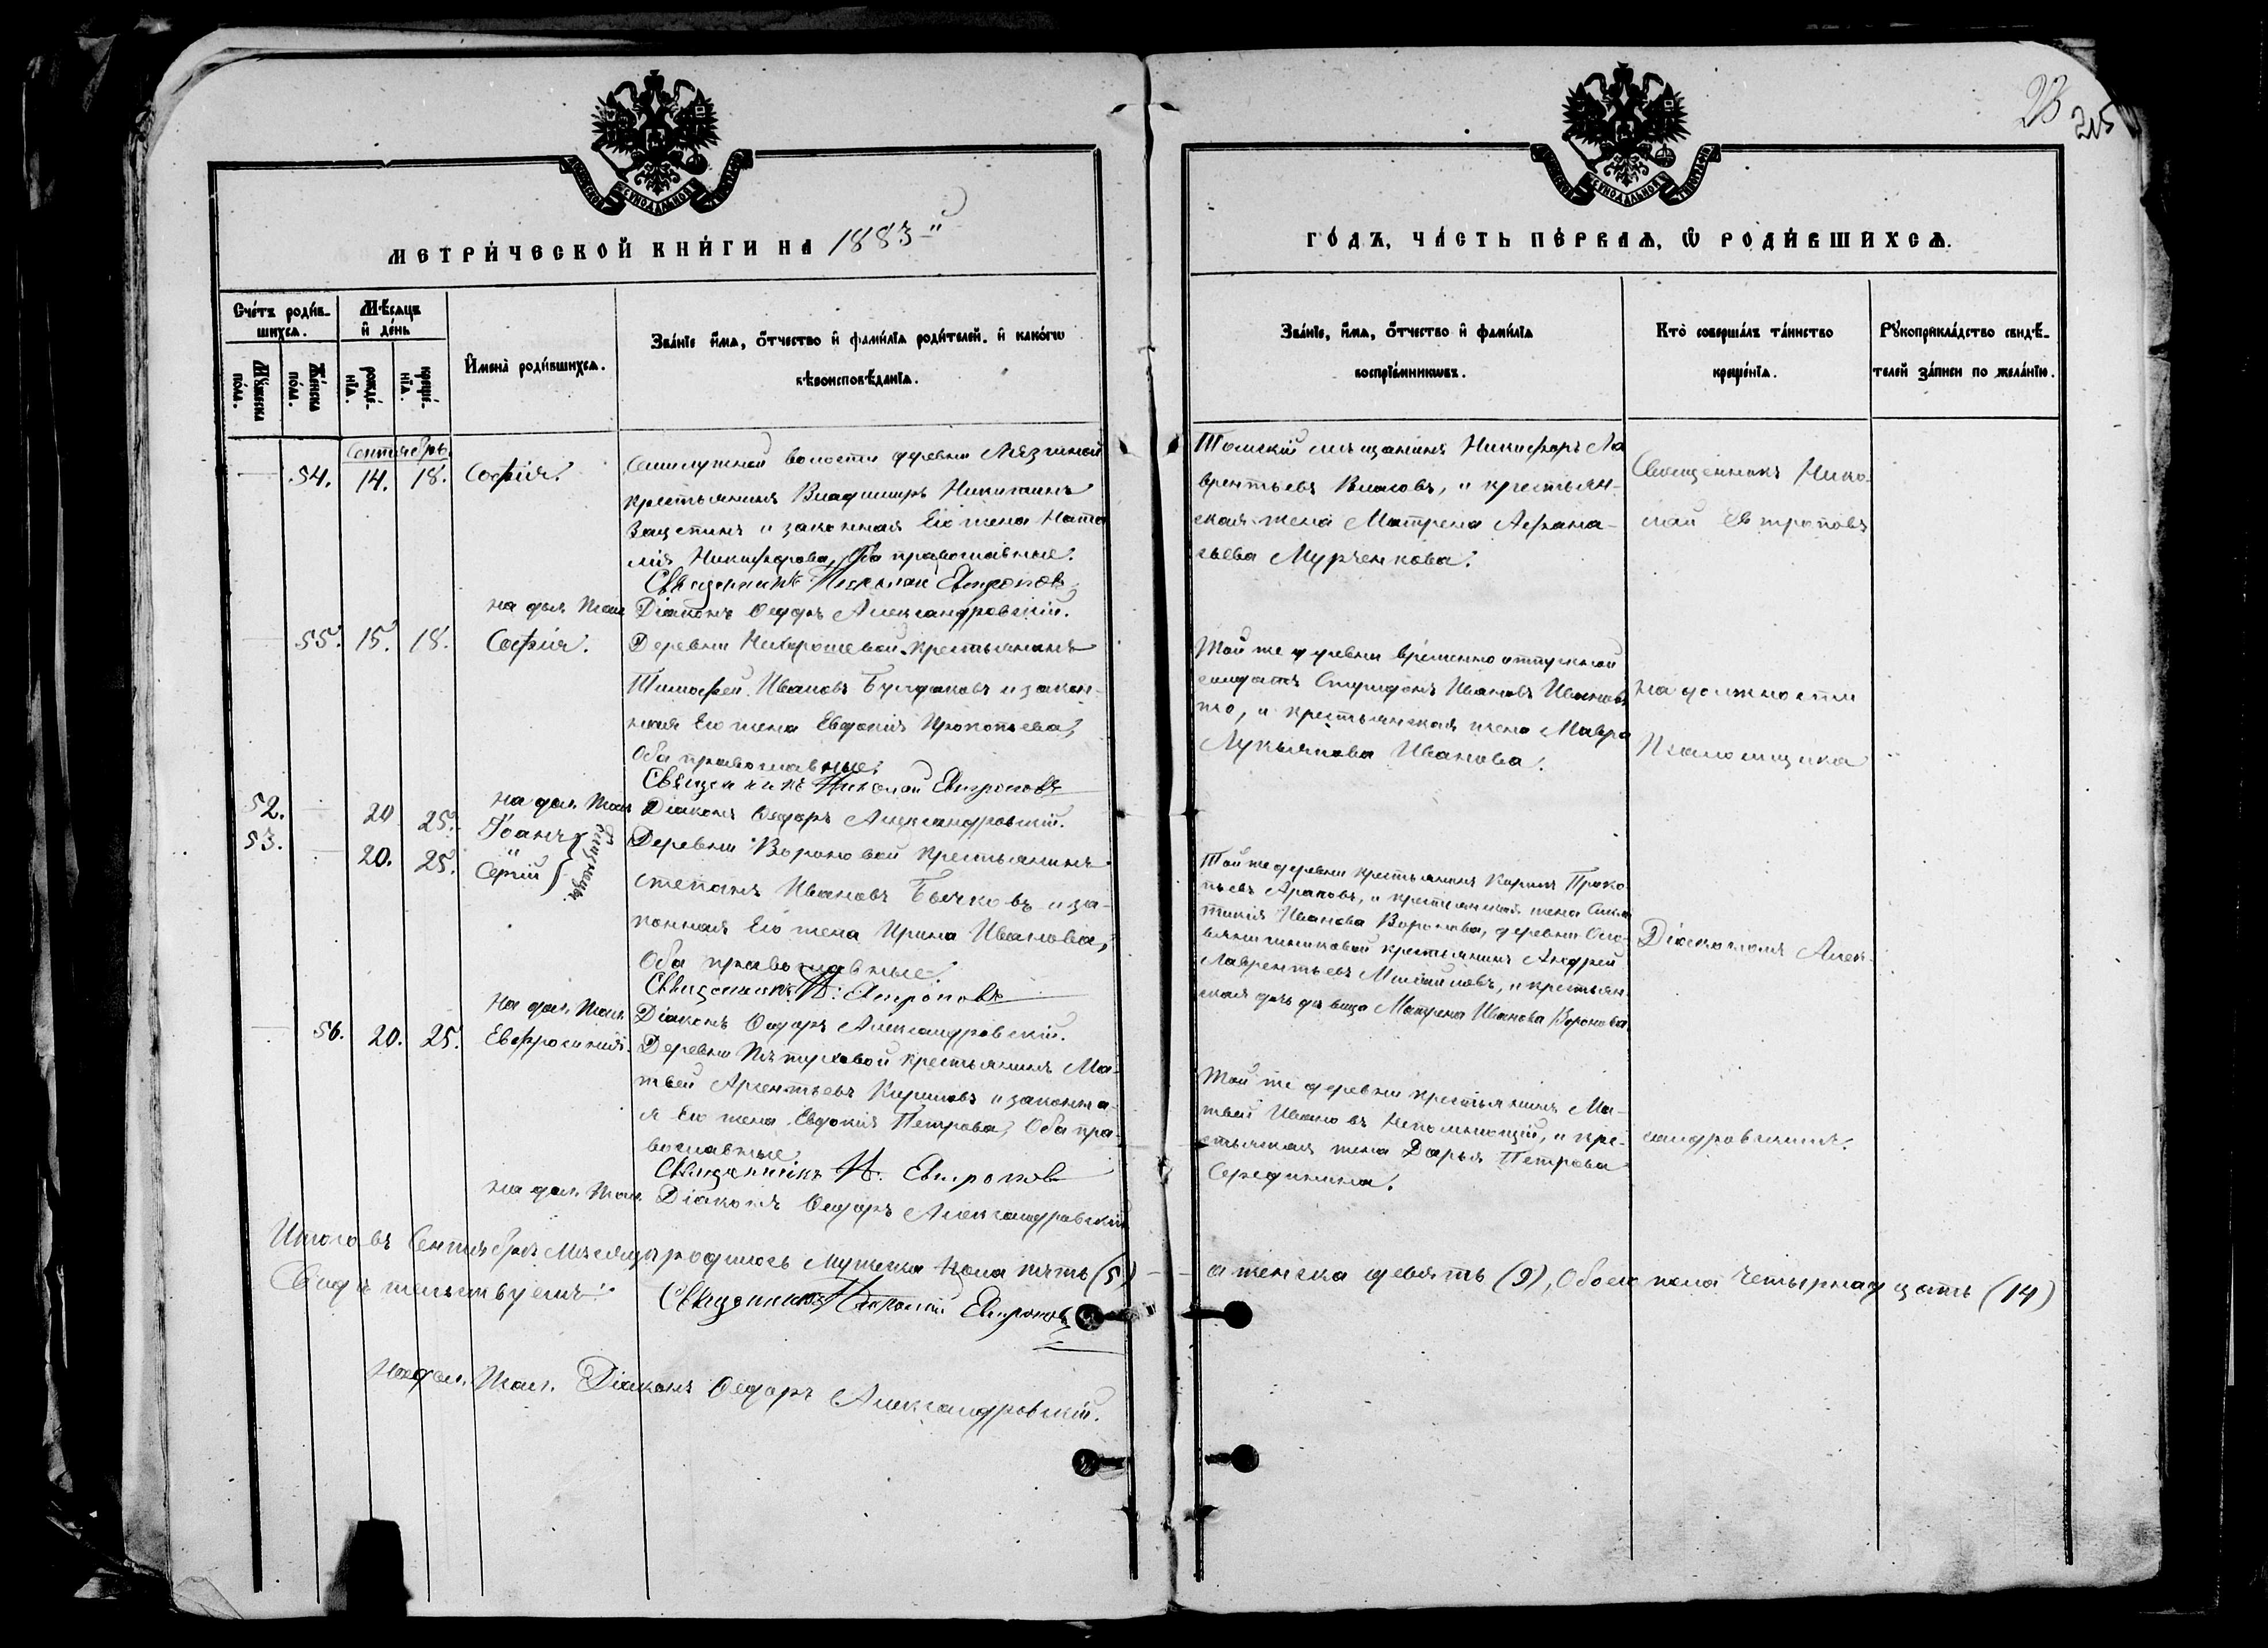 23
215
МЕТРИ́ЧЕСКОЙ КНИ́ГИ НА 1883-й
ГО́ДЪ, ЧА́СТЬ ПЕ́РВАѦ, Ѿ РОДИ́ВШИХСѦ.
Сче́тъ роди́в-
шихсѧ.
Мѣ́сѧцъ
и де́нь
Мꙋ́жеска
по́ла.
Же́нска
по́ла.
рожде́-
нїѧ.
креще́-
нїѧ.
Имена̀ роди́вшихсѧ.
Зва́нїе и́мѧ, о́тчество и фами́лїѧ роди́телей. и како́гѡ
вѣроисповѣ́данїѧ.
Зва́нїе, и́мѧ, о́тчество и фами́лїѧ
воспрїе́мникѡвъ.
Кто̀ соверша́лъ та́инство
креще́нїѧ.
Рꙋкоприкла́дство свидѣ́-
телей за́писи по жела́нїю.
Сентябрь
54. 14. 18. Софія.
Семилужной волости деревни Лязгиной
крестьянинъ Владимиръ Никитинъ
Защепинъ и законная Его жена Ната
лія Никифорова, Оба православные.
Священникъ Николай Евтроповъ
на дол. Псал. Діаконъ Ѳедоръ Александровскій.
Томскій мѣщанинъ Никифоръ Ла
врентьевъ Власовъ, и крестьян-
ская жена Матрена Афана-
сьева Мурзенкова.
Священникъ Нико-
лай Евтроповъ
55. 15. 18. Софія.
Деревни Нехорошевой крестьянинъ
Тимофей Ивановъ Булдаковъ и закон-
ная Его жена Евдокія Прокопьева,
Оба православные.
Священникъ Николай Евтроповъ
на дол. Псал. Діаконъ Ѳедоръ Александровскій.
Той же деревни временно отпускной
солдатъ Спиридонъ Ивановъ Иванов
, и крестьянская жена Мавра
Лукьянова Иванова.
на должности
Псаломщика
52. 20 25. Іоаннъ
53. 20. 25. Сергій
близнецы.
Деревни Вороновой Крестьянинъ
Степанъ Ивановъ Бычковъ и за-
конная Его жена Ирина Иванова,
Оба православные.
Священникъ Н. Евтроповъ
на дол. Псал. Діаконъ Ѳедоръ Александровскій.
Той же деревни крестьянинъ Карпъ Проко-
пьевъ Араповъ, и крестьянская жена
Иванова Воронова, деревни
крестьянинъ Андрей
Лаврентьевъ Михайловъ, и крестьян-
ская дочь девица Матрена Иванова Воронова.
Діакономъ Алек-
56. 20. 25. Евфросинія.
Деревни Пѣтуховой крестьянинъ Ма-
твей Арсентьевъ Кириловъ и законна-
я Его жена Евдокія Петрова, Оба пра-
вославные.
Священникъ Н. Евтроповъ
на дол. Псал. Діаконъ Ѳедоръ Александровскій
Той же деревни крестьянинъ Ма-
твей Ивановъ Непомнющій, и кре-
стьянская жена Дарья Петрова
Середнина.
сандровскимъ.
Итого въ Сентябрѣ мѣсяцѣ родилось мужеска пола пять (5) - а женска девять (9), Обоего пола четырнадцать (14)
Свидѣтельствуемъ: Священникъ Николай Евтроповъ
на дол. Псал. Діаконъ Ѳедоръ Александровскій.